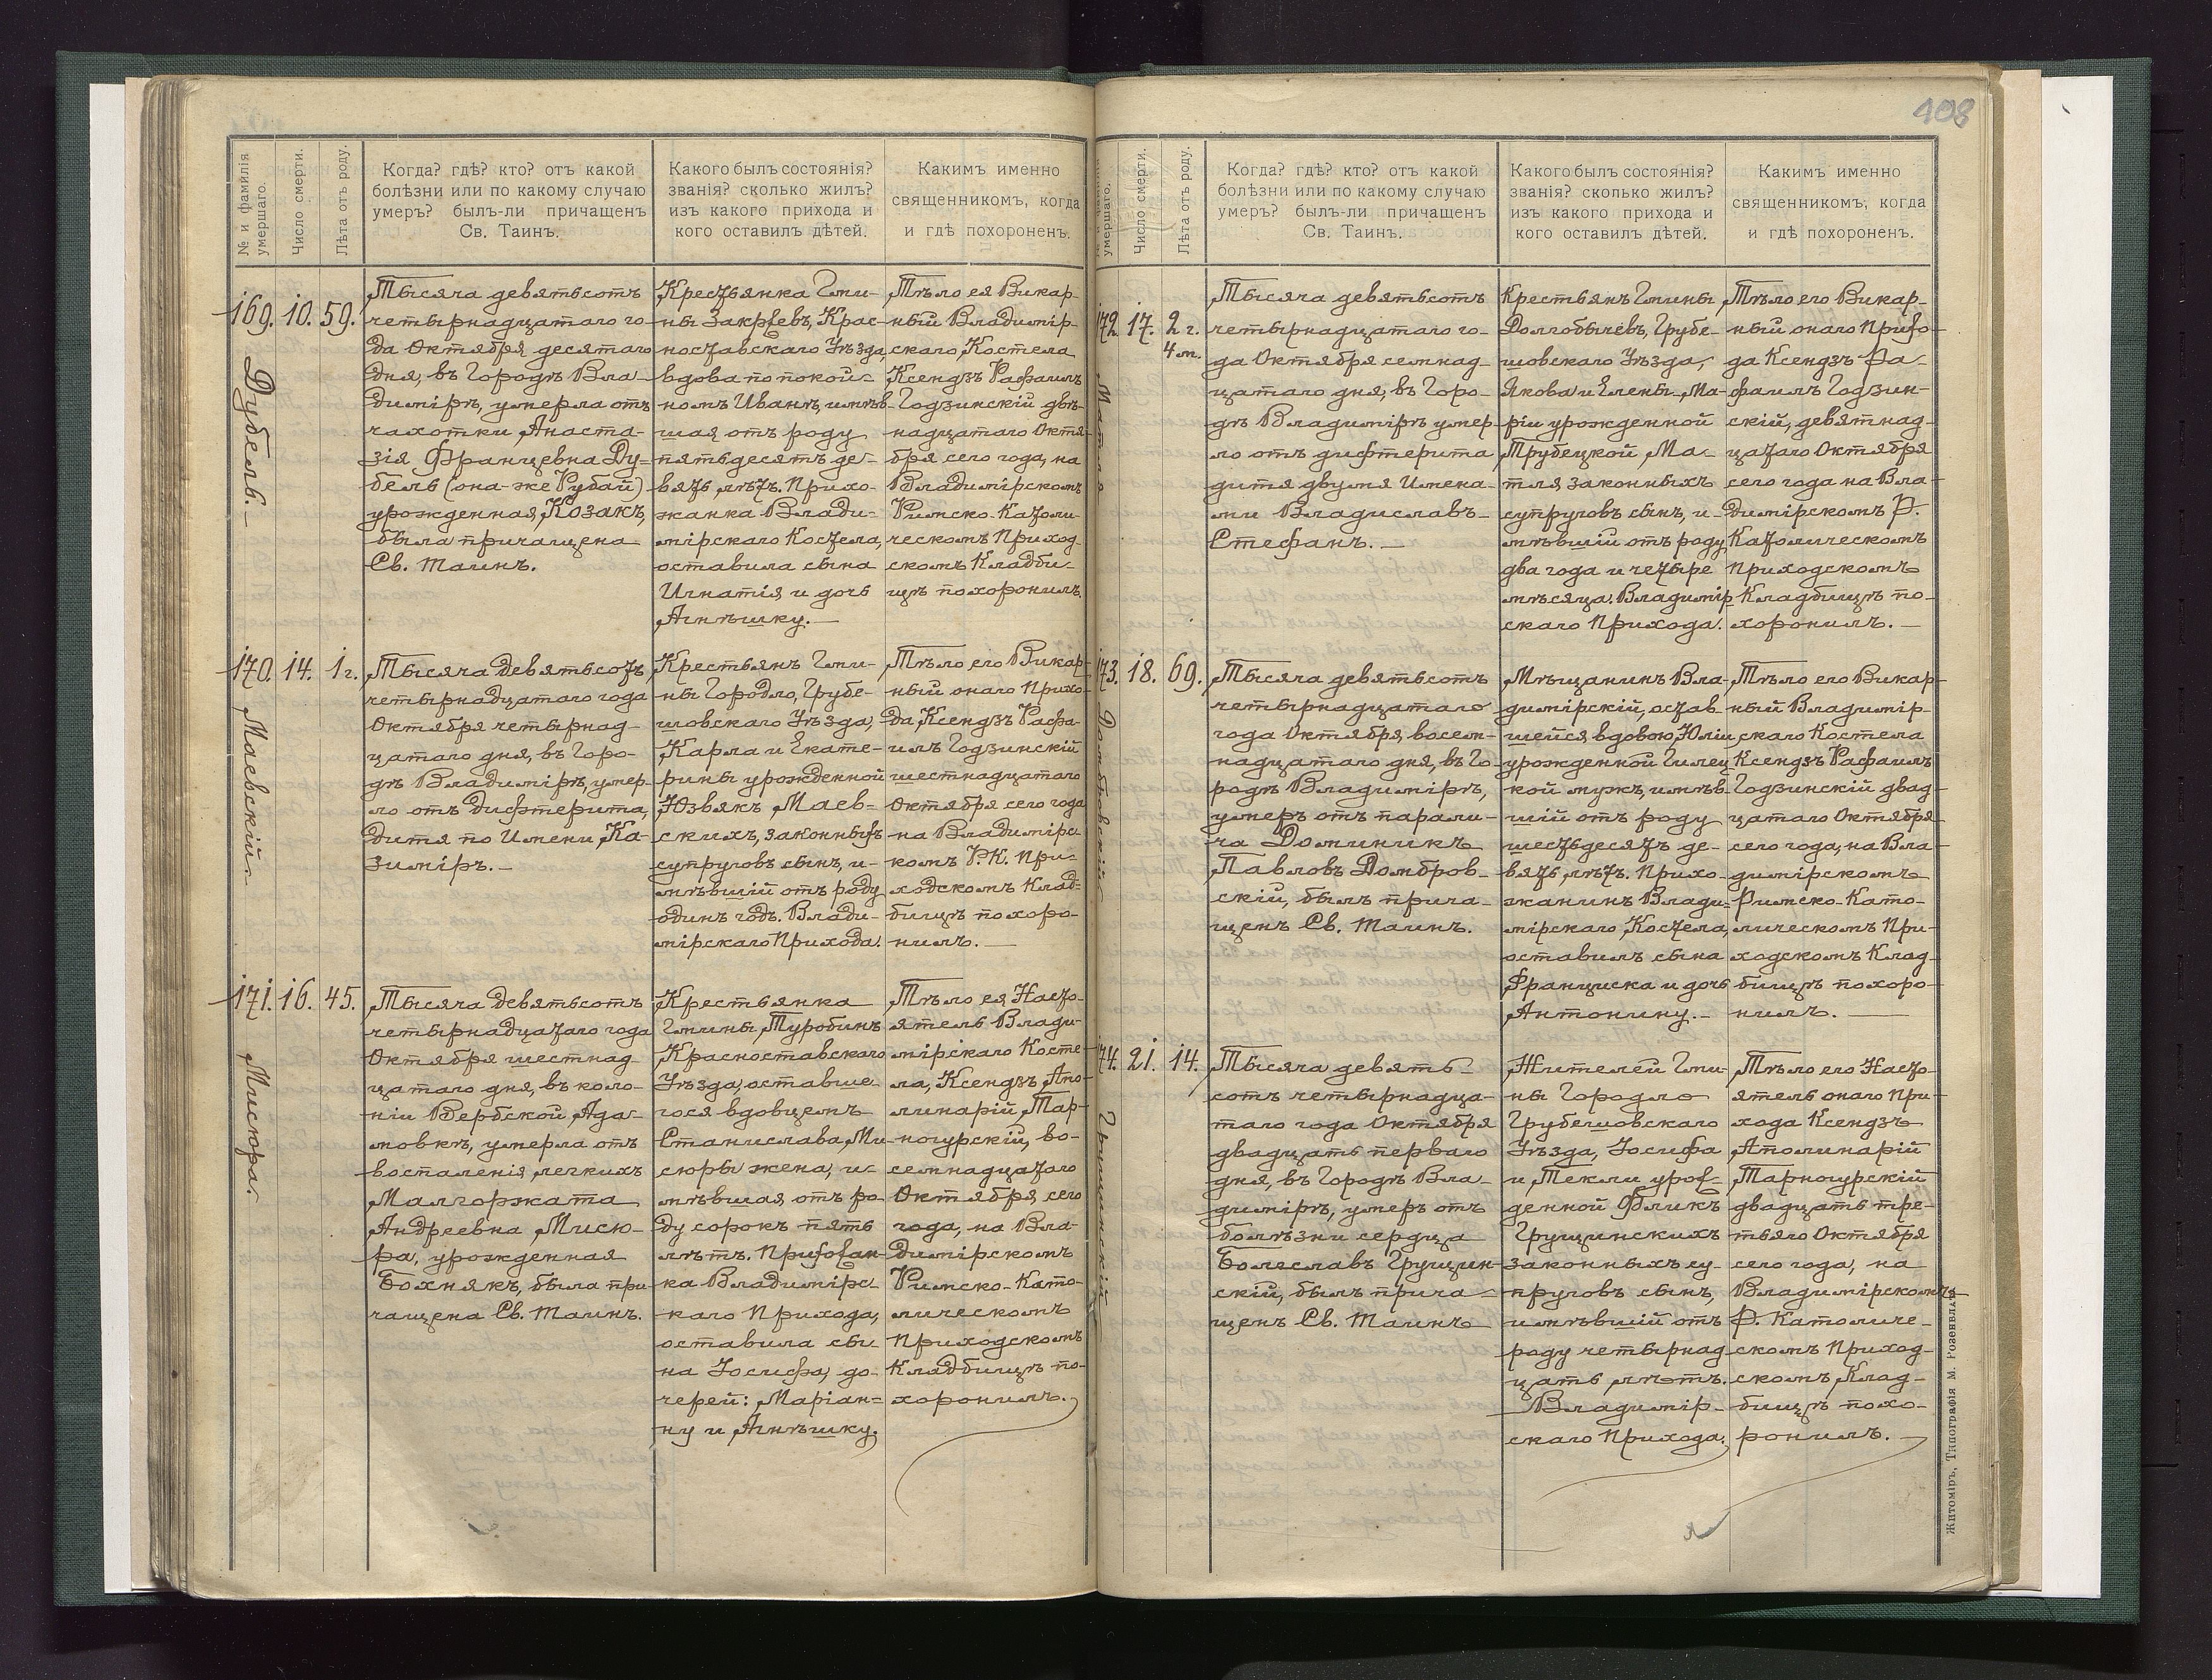 408
№ и фамилія умершаго.
Число смерти.
Лѣта отъ роду.
Когда? гдѣ? кто? отъ какой
болѣзни или по какому случаю
умеръ? былъ-ли причащенъ
Св. Таинъ.
Какого былъ состоянія?
званія? сколько жилъ?
изъ какого прихода и
кого оставилъ дѣтей.
Какимъ именно
священникомъ, когда
и гдѣ похороненъ.
169.
Дубель.
10.
59.
Тысяча девятьсотъ
четырнадцатаго го-
да Октября десятаго
дня, въ Городѣ Вла-
димірѣ, умерла отъ
чахотки Анаста-
зія Францевна Ду-
бель (она-же Рубай)
урожденная Козакъ,
была причащена
Св. Таинъ.
Крестьянка Гми-
ны Закржевъ, Крас-
ноставскаго Уѣзда,
вдова по покой-
номъ Иванѣ, имѣв-
шая отъ роду
пятьдесятъ де-
вять лѣтъ. Прихо-
жанка Влади-
мірскаго Костела,
оставила сына
Игнатія и дочь
Агнѣшку.
Тѣло ея Викар-
ный Владимір-
скаго Костела
Ксендзъ Рафаилъ
Годзинскій двѣ-
надцатаго Октя-
бря сего года, на
Владимірскомъ
Римско-Католи-
ческомъ Приход-
скомъ Кладби-
щѣ похоронилъ.
170.
Маевскій
14.
1 г.
Тысяча девятьсотъ
четырнадцатаго года
Октября четырнад-
цатаго дня, въ Горо-
дѣ Владимірѣ, умер-
ло отъ дифтерита,
дитя по Имени Ка-
зиміръ.
Крестьянъ Гми-
ны Городло, Грубе-
шовскаго Уѣзда,
Карла и Екате-
рины урожденной
Юзвякъ Маев-
скихъ, законныхъ
супруговъ сынъ, и-
мѣвшій отъ роду
одинъ годъ. Влади-
мірскаго Прихода.
Тѣло его Викар-
ный онаго Прихо-
да, Ксендзъ Рафа-
илъ Годзинскій
шестнадцатаго
Октября сего года
на Владимірс-
комъ Р.К. При-
ходскомъ Клад-
бищѣ похоро-
нилъ.
171.
Мисюра.
16.
45.
Тысяча девятьсотъ
четырнадцатаго года
Октября шестнад-
цатаго дня, въ коло-
ніи Вербской Ада-
мовкѣ, умерла отъ
воспаленія легкихъ
Малгоржата
Андреевна Мисю-
ра, урожденная
Бохнякъ, была при-
чащена Св. Таинъ.
Крестьянка
Гмины Туробинъ
Красноставскаго
Уѣзда, оставше-
гося вдовцемъ
Станислава, Ми-
сюры жена, и-
мѣвшая отъ ро-
ду сорокъ пять
лѣтъ. Прихожан-
ка Владимірс-
каго Прихода,
оставила сы-
на Іосифа, до-
черей: Маріан-
ну и Агнѣшку.
Тѣло ея Насто-
ятель Влади-
мірскаго Косте-
ла, Ксендзъ Апо-
линарій Тар-
ногурскій, во-
семнадцатаго
Октября сего
года, на Вла-
димірскомъ
Римско-Като-
лическомъ
Приходскомъ
Кладбищѣ по-
хоронилъ.
№ и фамилія умершаго.
Число смерти.
Лѣта отъ роду.
Когда? гдѣ? кто? отъ какой
болѣзни или по какому случаю
умеръ? былъ-ли причащенъ
Св. Таинъ.
Какого былъ состоянія?
званія? сколько жилъ?
изъ какого прихода и
кого оставилъ дѣтей.
Какимъ именно
священникомъ, когда
и гдѣ похороненъ.
172.
Матля
17.
2 г.
4 м.
Тысяча девятьсотъ
четырнадцатаго го-
да Октября семнад-
цатаго дня, въ Горо-
дѣ Владимірѣ умер-
ло отъ дифтерита
дитя двумя Имена-
ми Владиславъ-
Стефанъ.
Крестьянъ Гмины
Долгобычевъ, Грубе-
шовскаго Уѣзда,
Якова и Елены-Ма-
ріи урожденной
Трубецкой, Ма-
тля, законныхъ
супруговъ сынъ, и-
мѣвшій отъ роду
два года и четыре
мѣсяца. Владимір-
скаго Прихода.
Тѣло его Викар-
ный онаго Прихо-
да Ксендзъ Ра-
фаилъ Годзин-
скій, девятнад-
цатаго Октября
сего года на Вла-
димірскомъ Р.
Католическомъ
Приходскомъ
Кладбищѣ по-
хоронилъ.
173.
Домбровскій
18.
69.
Тысяча девятьсотъ
четырнадцатаго
года Октября восем-
надцатаго дня, въ Го-
родѣ Владимірѣ,
умеръ отъ парали-
ча Доминикъ
Павловъ Домбров-
скій, былъ прича-
щенъ Св. Таинъ.
Мѣщанинъ Вла-
димірскій, остав-
шейся вдовою, Юліи
урожденной Гилец-
кой мужъ, имѣв-
шій отъ роду
шестьдесятъ де-
вять, лѣтъ. Прихо-
жанинъ Влади-
мірскаго, Костела,
оставилъ сына
Франциска и дочь
Антонину.
Тѣло его Викар-
ный Владимір-
скаго Костела
Ксендзъ Рафаилъ
Годзинскій двад-
цатаго Октября
сего года, на Вла-
димірскомъ
Римско-Като-
лическомъ При-
ходскомъ Клад-
бищѣ похоро-
нилъ.
174.
Грущинскій
21.
14.
Тысяча девять-
сотъ четырнадца-
таго года Октября
двадцать перваго
дня, въ Городѣ Вла-
димірѣ, умеръ отъ
болѣзни сердца
Болеславъ Грущин-
скій, былъ прича-
щенъ Св. Таинъ
Жителей Гми-
ны Городло
Грубешовскаго
Уѣзда, Іосифа
и Текли урож-
денной Фликъ
Грущинскихъ
законныхъ су-
пруговъ сынъ,
имѣвшій отъ
роду четырнад-
цать лѣтъ.
Владимір-
скаго Прихода.
Тѣло его Насто-
ятель онаго При-
хода Ксендзъ
Аполинарій
Тарногурскій
двадцать тре-
тьяго Октября
сего года, на
Владимірскомъ
Р. Католиче-
скомъ Приход-
скомъ Клад-
бищѣ похо-
ронилъ.
Житоміръ, Типографія М. Розенблатъ